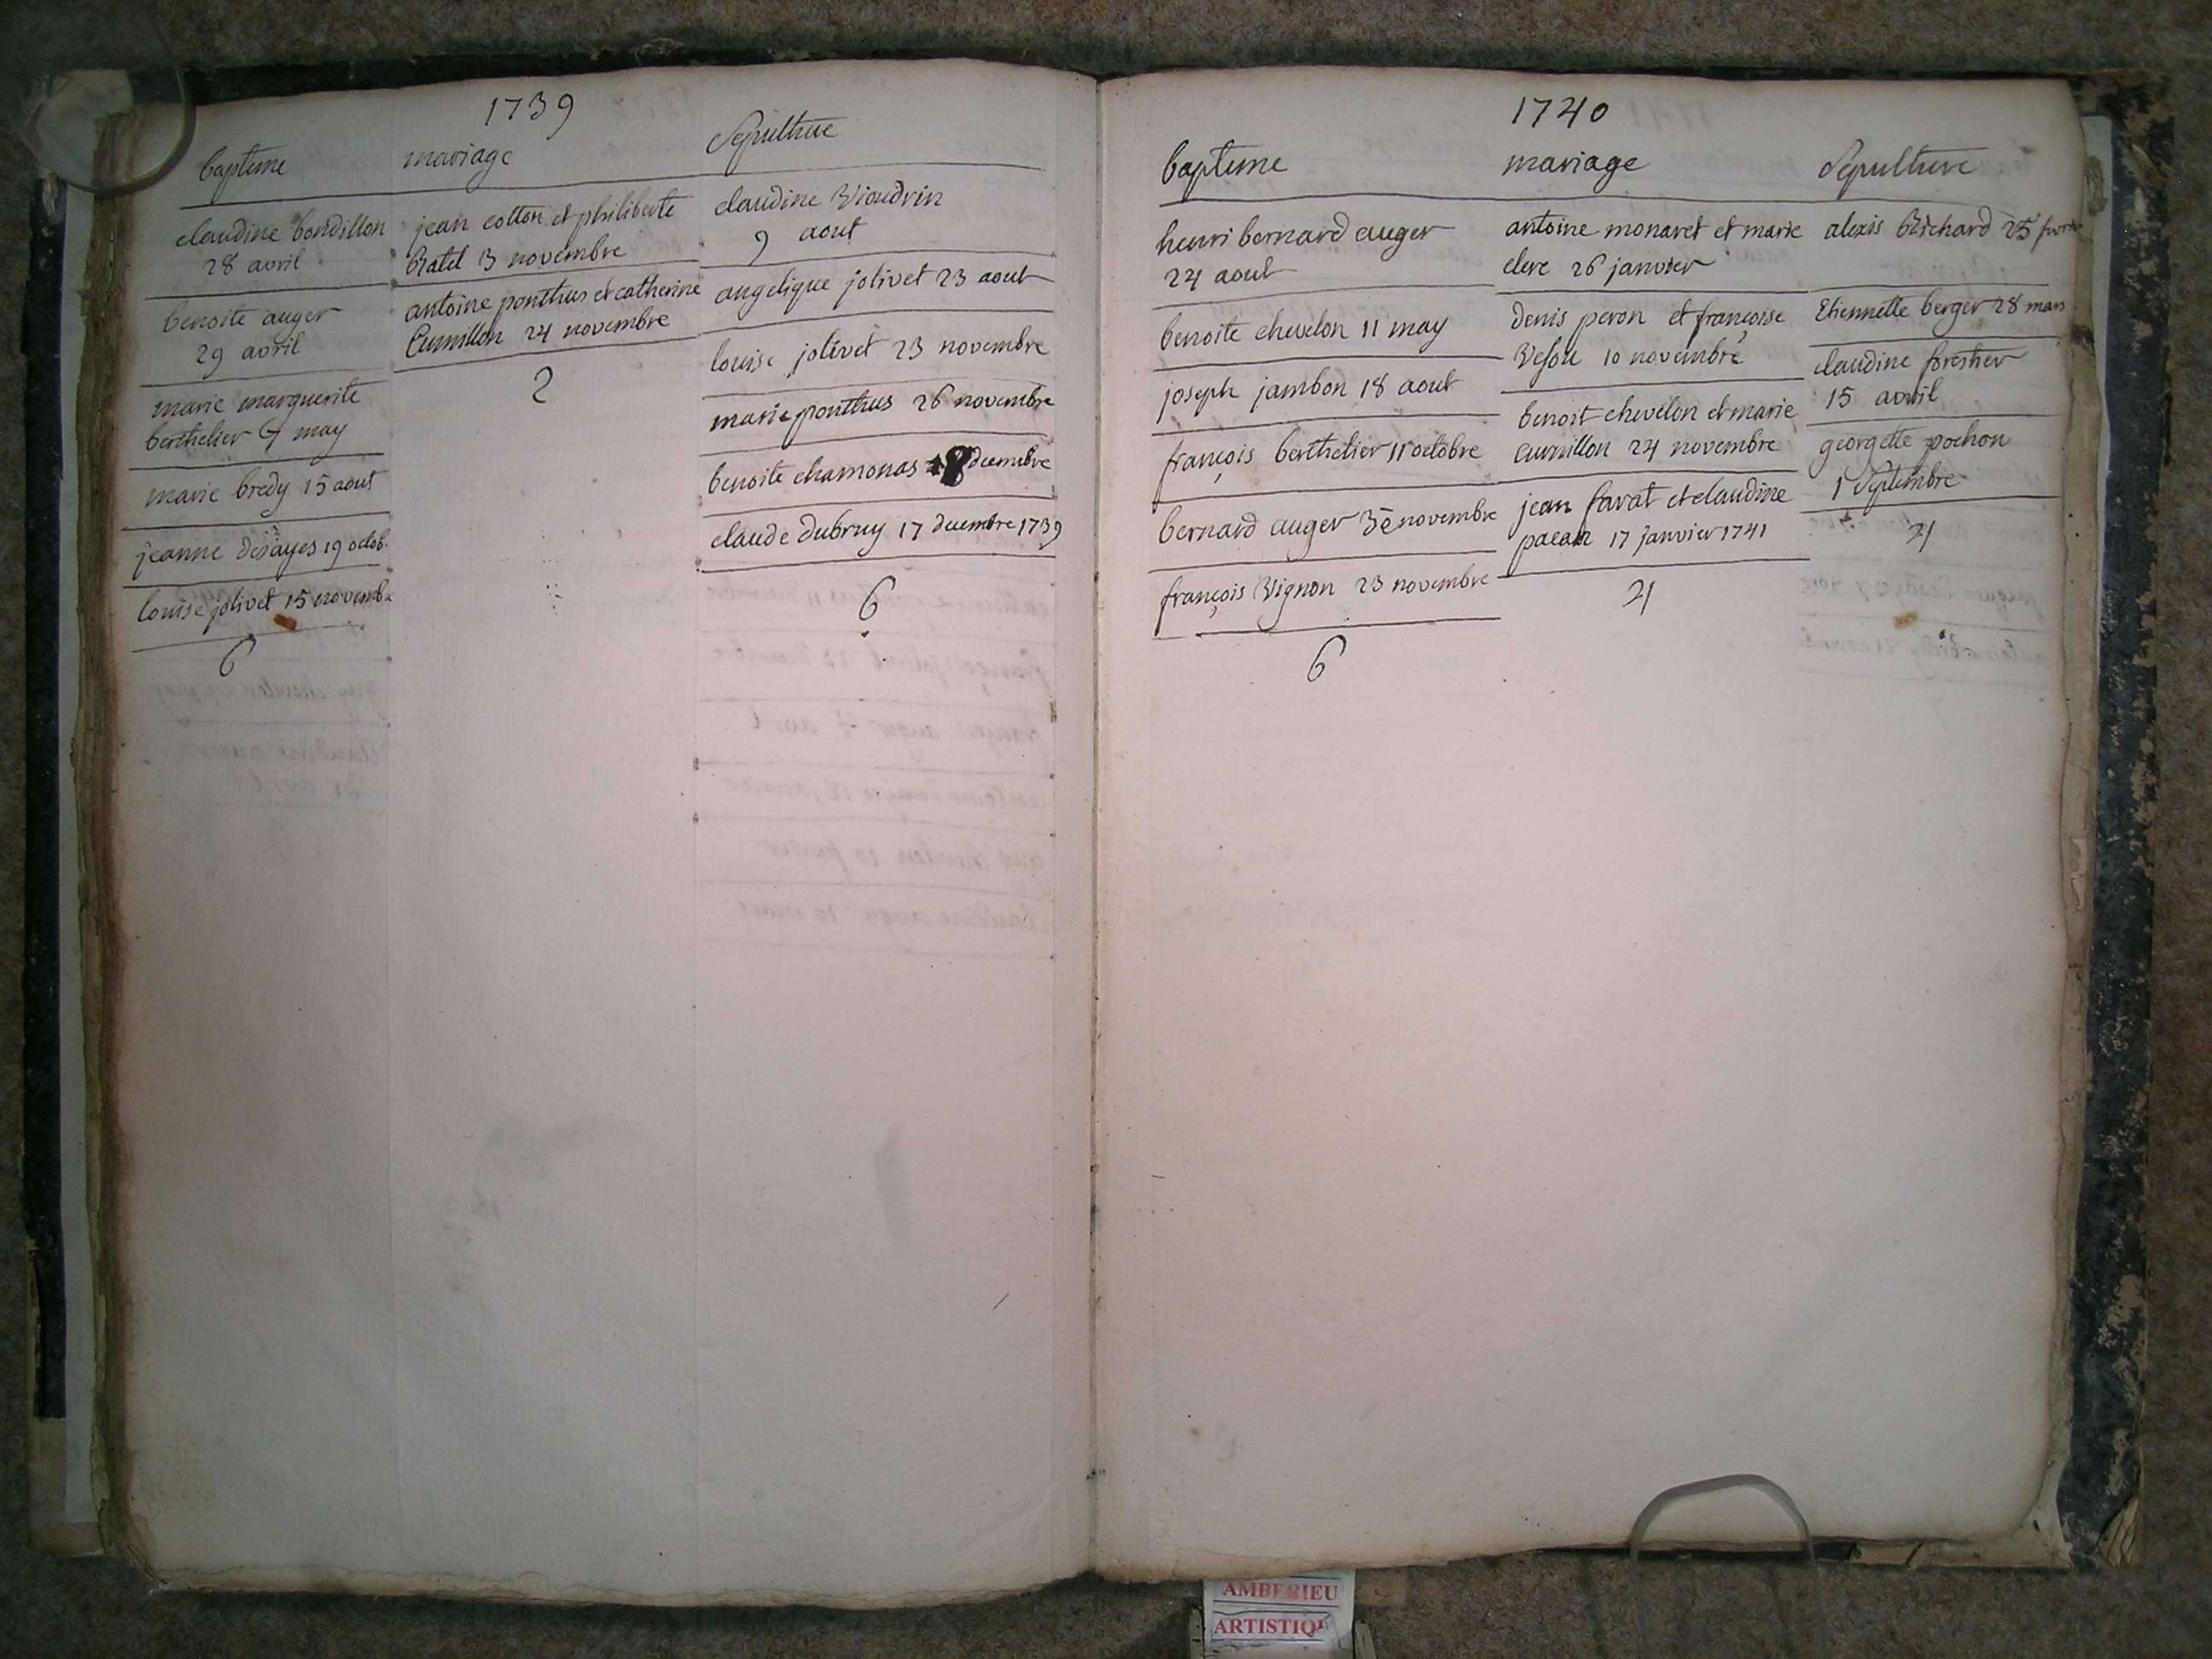 1739
bapteme
claudine bondillon
28 avril
benoite auger
29 avril
marie marguerite
berthelier 7 may
marie bredy 15 aout
jeanne desayes 19 octob.
louise jolivet 15 novemb
6
mariage
jean cotton et philiberte
Ratel 3 novembre
antoine ponthus et catherine
Cumillon 24 novembre
2
Sepulture
claudine Viaudrin
9 aout
angelique jolivet 23 aout
louise jolivet 23 novembre
marie ponthus 26 novembre
benoite chamonas 8 decembre
claude dubruy 17 decembre 1739
6
1740
bapteme
henri bernard auger
24 aout
benoite chevelon 11 may
joseph jambon 18 aout
françois berthelier 11 octobre
bernard auger 3e novembre
françois Vignon 23 novembre
6
mariage
antoine monaret et marie
clerc 26 janvier
denis peron et françoise
Vesou 10 novembre
benoit chevelon et marie
cumillon 24 novembre
jean favat et claudine
17 janvier 1741
4
Sepulture
alexis Richard 25
Etiennette berger 28 mars
claudine forestier
15 avril
georgette pochon
1 Septembre
4
AMBERIEU
ARTISTIQ